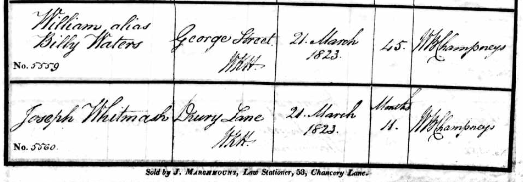 William alias
Billy Waters
No. 5559
George Street
WKH
21. March
1823.
45.
WB Champneys
Joseph Whitmash
No. 5560
Drury Lane
WKH
21. March
1823.
Months
11.
WB Champneys
Sold by J. MARCHMOUNT, Law Stationer, 53, Chancery Lane.